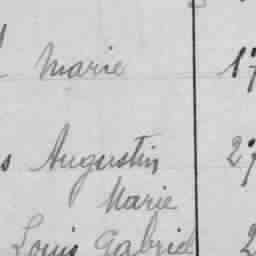 Marie 17
s Augustin 27
Marie
Louis Gabriel 2